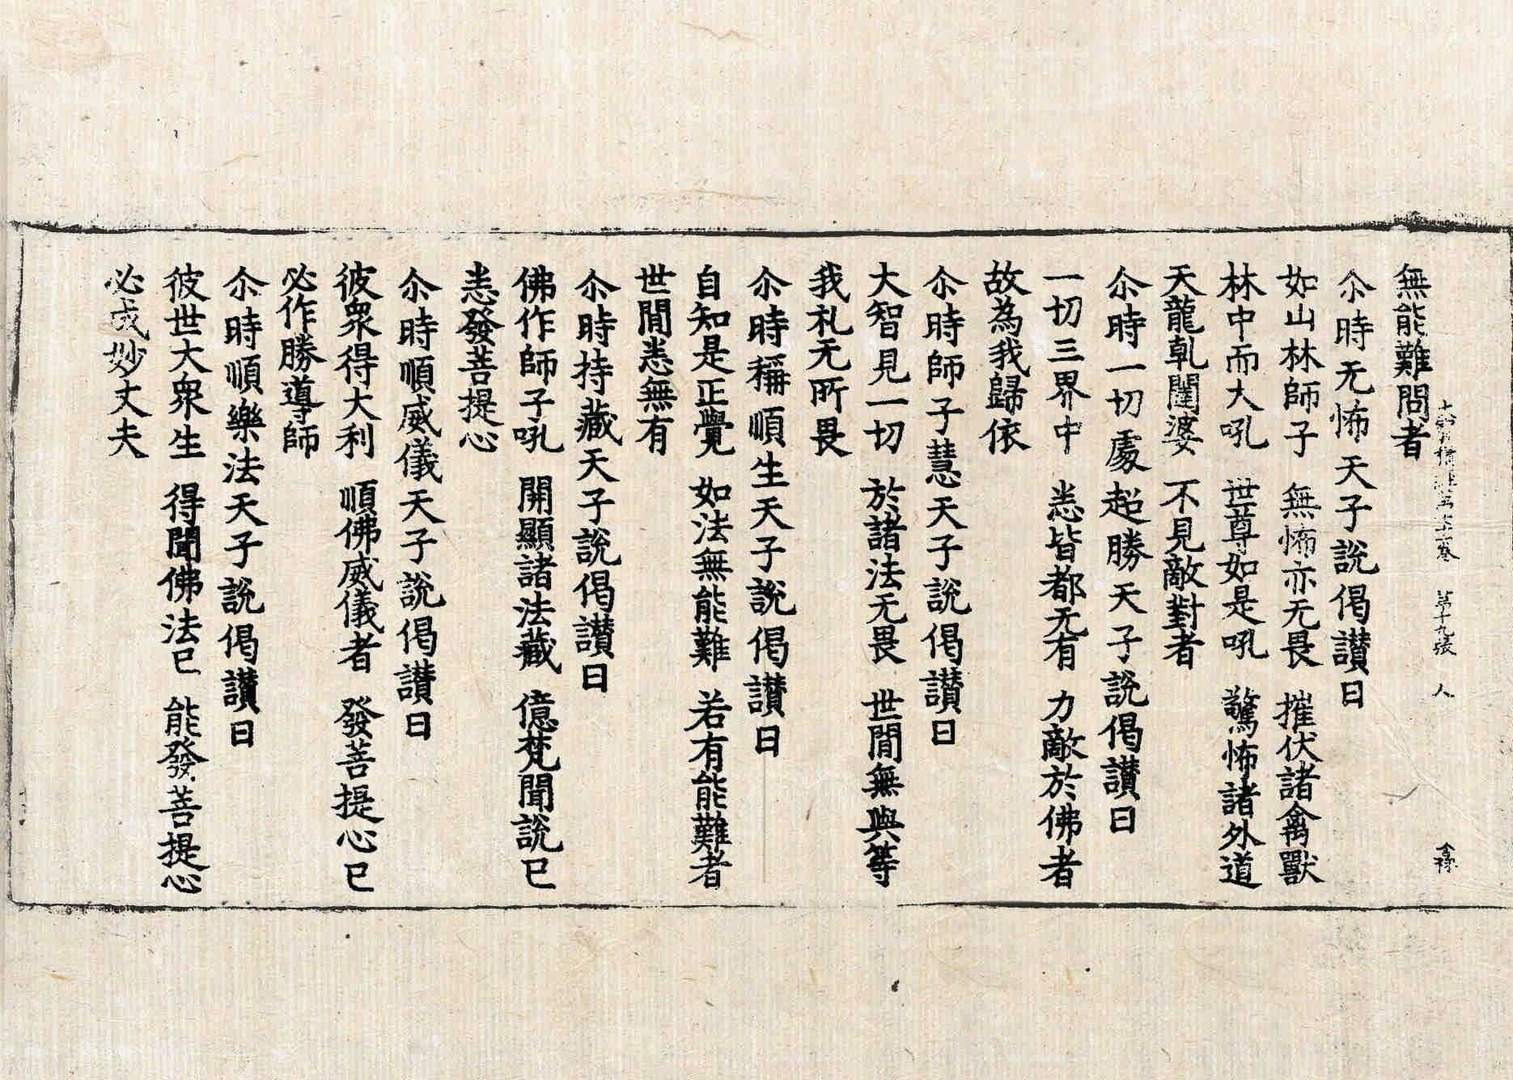 無能難問者
尒時无怖天子說偈讃曰
如山林師子 無怖亦无畏 摧伏諸禽獸
林中而大吼 世尊如是吼 驚怖諸外道
天龍乹闥婆 不見敵對者
尒時一切處超勝天子說偈讃曰
一切三界中 悉皆都无有 力敵於佛者
故為我歸依
尒時師子慧天子說偈讃曰
大智見一切 於諸法无畏 世間無與等
我礼无所畏
尒時稱順生天子說偈讃曰
自知是正覺 如法無能難 若有能難者
世間悉無有
尒時持藏天子說偈讃曰
佛作師子吼 開顯諸法藏 億梵聞說已
悉發菩提心
尒時順威儀天子說偈讃曰
彼衆得大利 順佛威儀者 發菩提心已
必作勝導師
尒時順樂法天子說偈讃曰
彼世大衆生 得聞佛法已 能發菩提心
必成妙丈夫
卷 第十九張 人